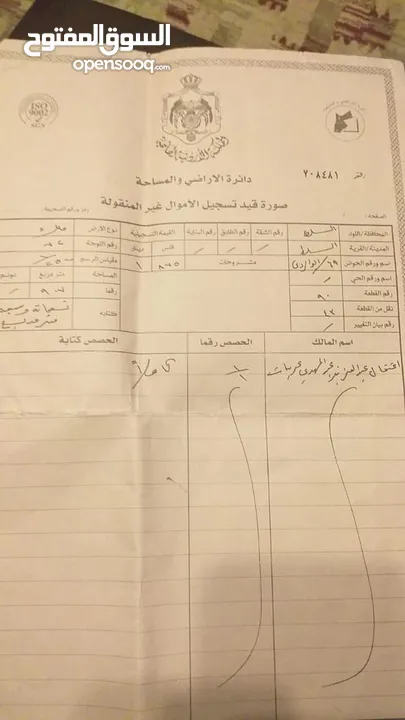 السوق المفتوح
opensooq.com
ISO 9002
SGS
المملكة الأردنية الهاشمية
الرقم ٧٠٨٤٨١
دائرة الاراضي والمساحة
صورة قيد تسجيل الاموال غير المنقولة
الصفحة :
رمز ورقم الصحيفة :
المحافظة/اللواء السلط رقم الشقة رقم الطابق رقم البناية القيمة التسجيلية نوع الارض ملك
المدينة/القرية السلط / / / فلس دينار رقم اللوحة ٣٤
اسم ورقم الحوض ٦٩/ الوادي مشروحات ٨٣٥ ١ مقياس الرسم
اسم ورقم الحي / المساحة متر مربع دونم
رقم القطعة ٩٠ رقما
نقل من القطعة ١٢ كتابة
رقم بيان التغيير / متر مربع
اسم المالك الحصص رقما الحصص كتابة
عبد المهدي عربيات ١/١ كاملاً